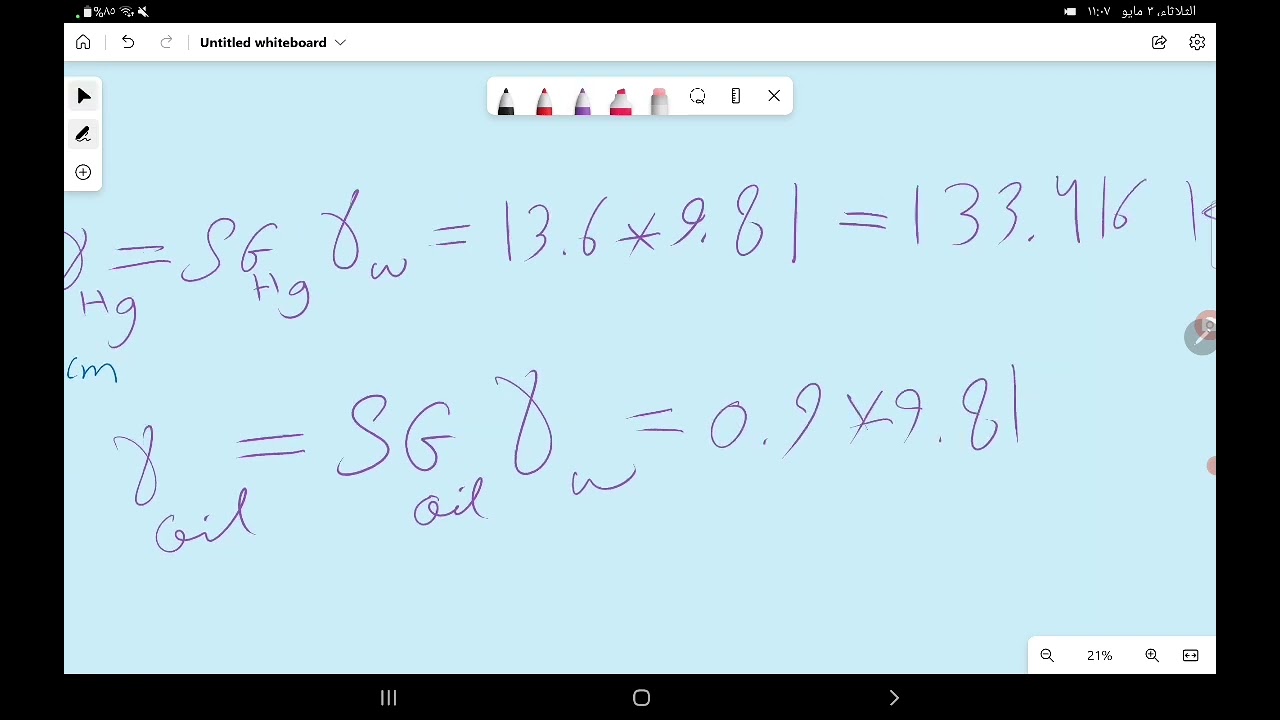 %٨٥ الثلاثاء، ٣ مايو ١١:٠٧
Untitled whiteboard
γHg = SGHg γw = 13.6 * 9.81 = 133.416
cm
γoil = SGoil γw = 0.9 * 9.81
21%